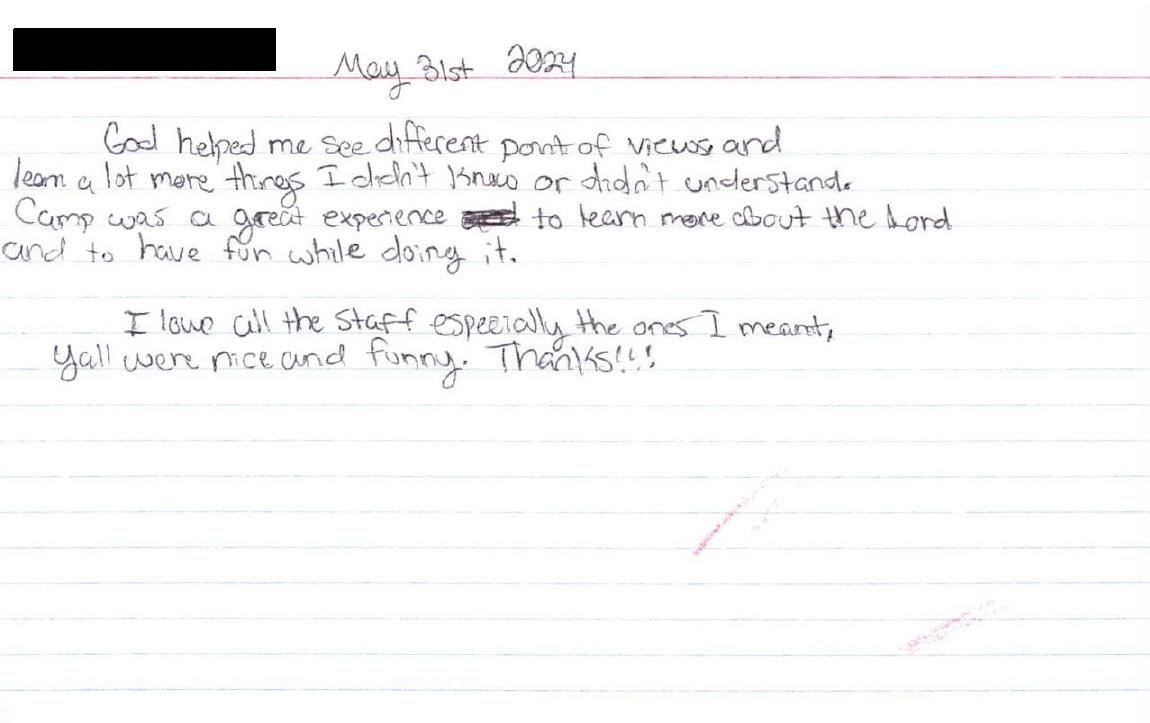 May 31st 2024
God helped me see different point of views and
learn a lot more things I didn't know or didn't understand.
Camp was a great experience to learn more about the Lord
and to have fun while doing it.
I love all the staff especially the ones I meant,
Yall were nice and funny. Thanks!!!